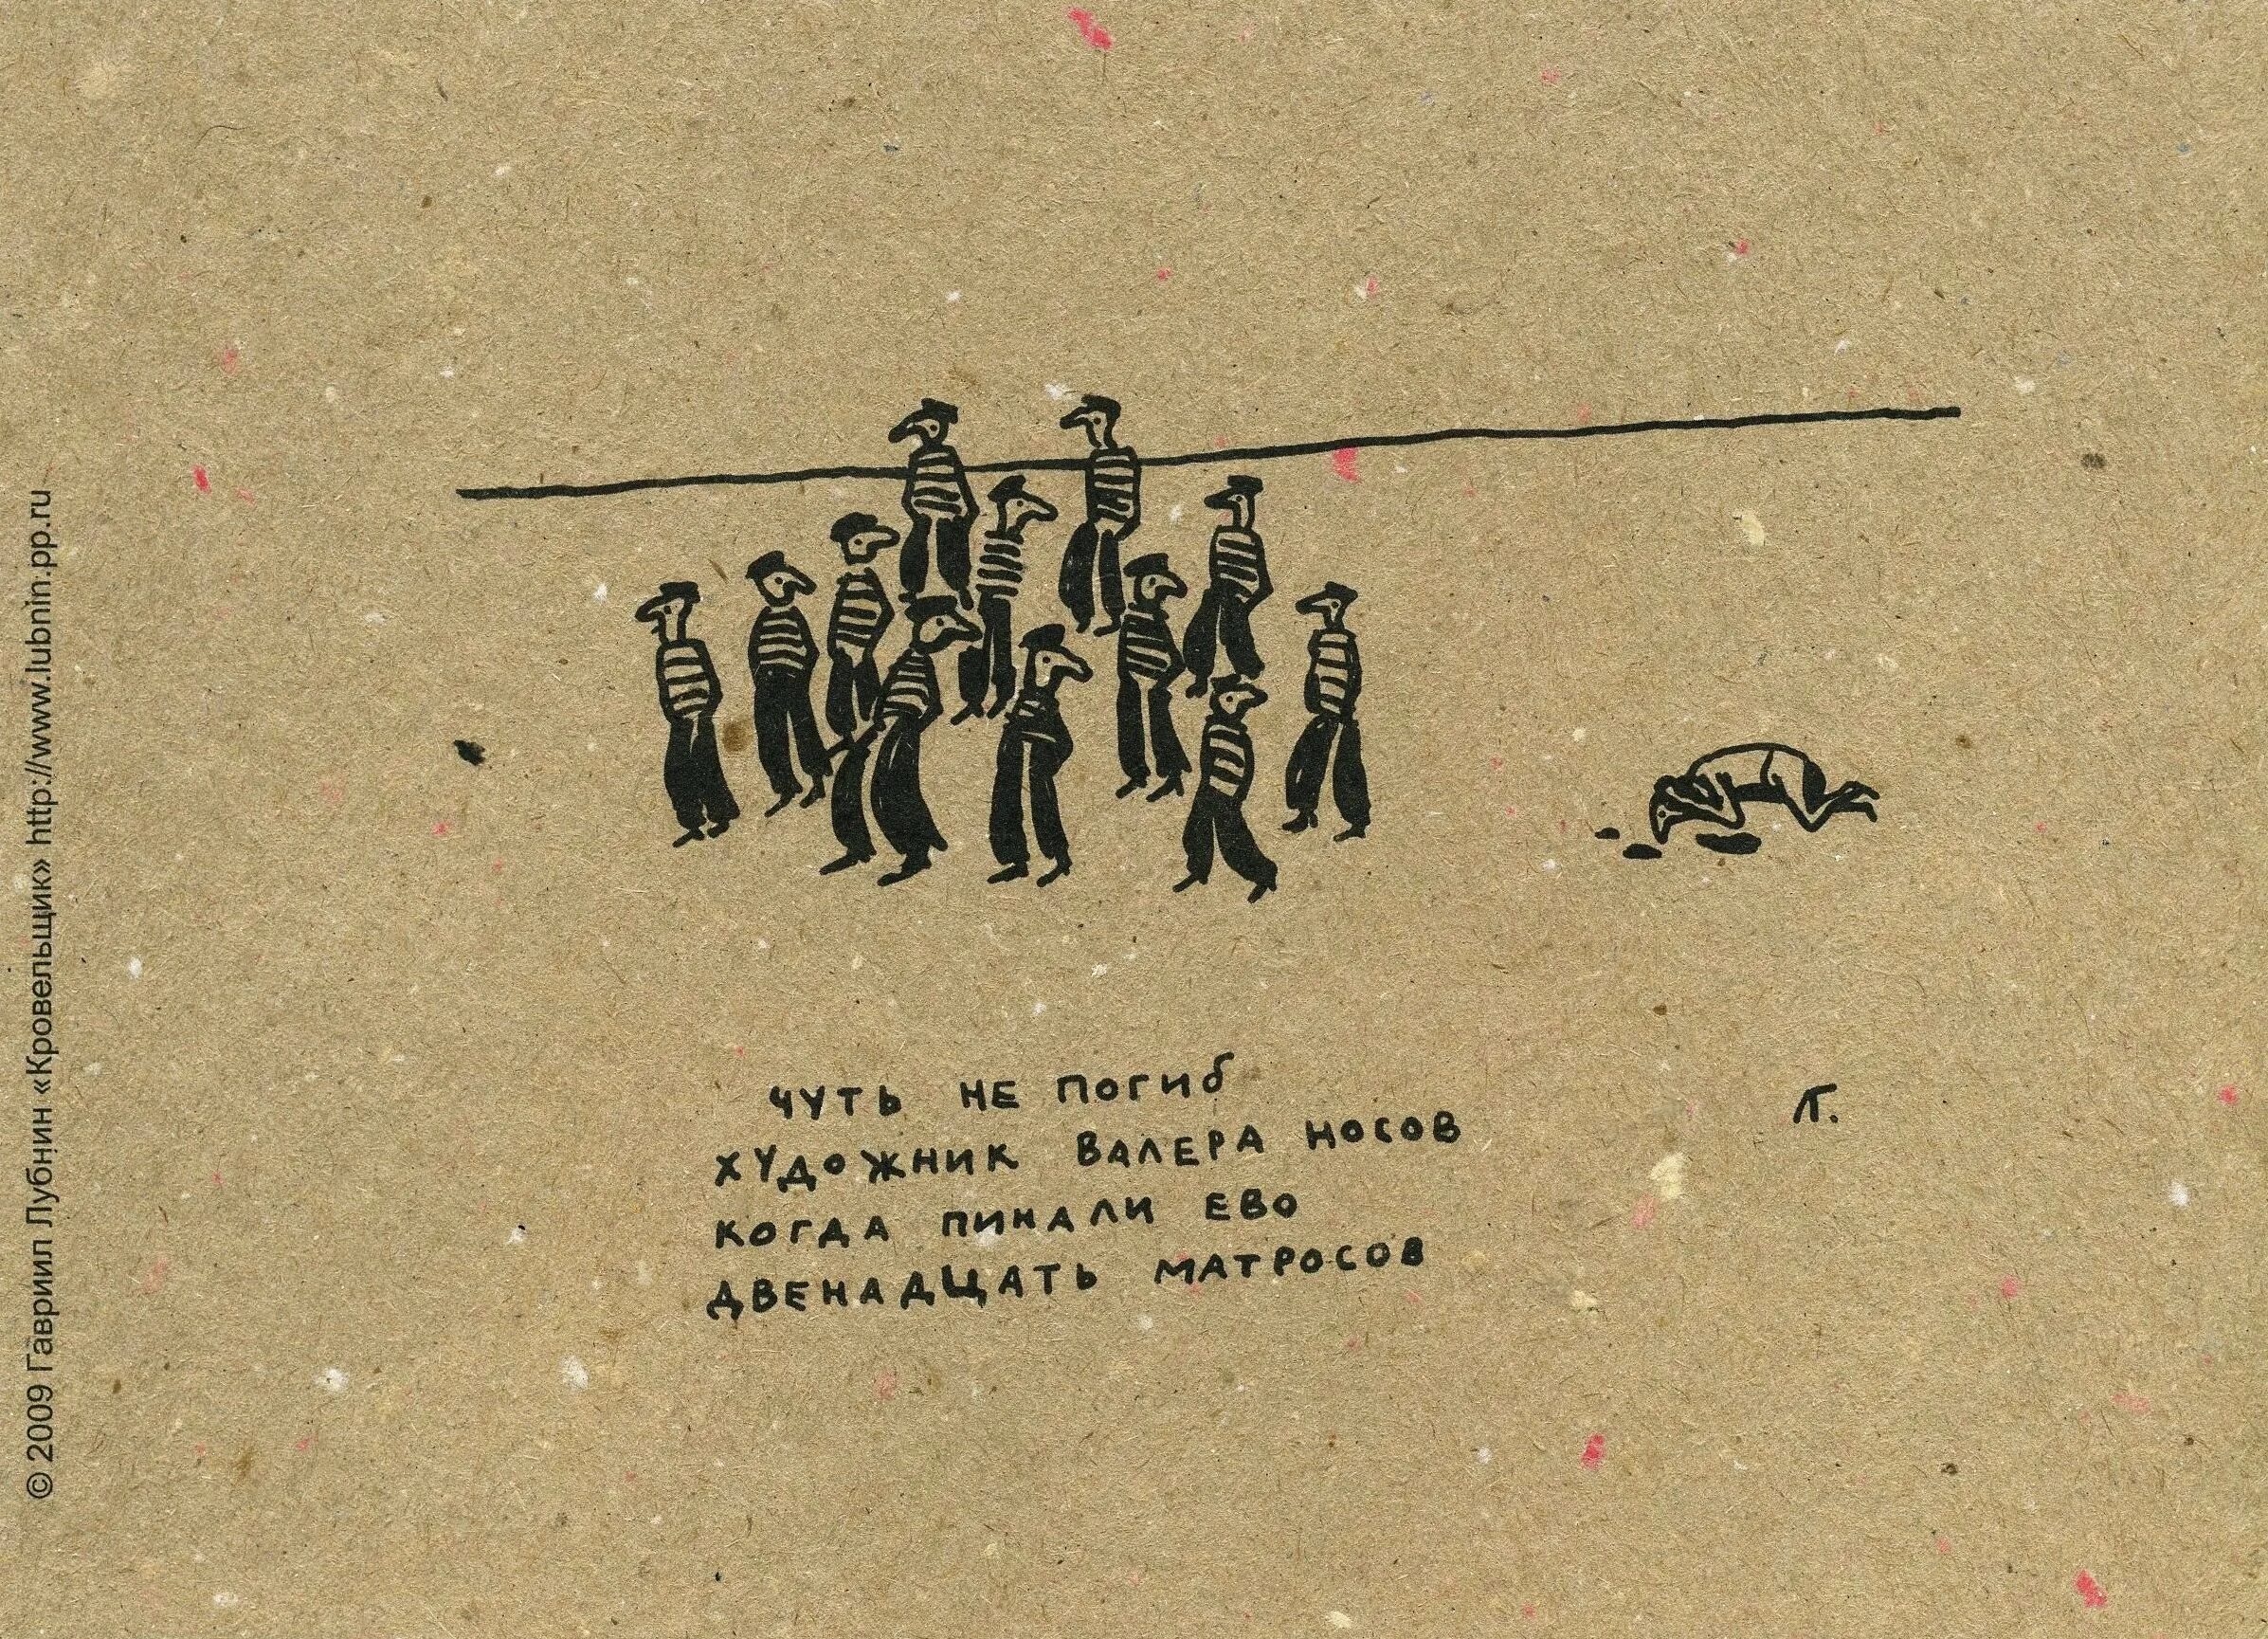 чуть не погиб
художник Валера Носов
когда пинали ево
двенадщать матросов
Л.
© 2009 Гавриил Лубнин «Кровельщик» http://www.lubnin.pp.ru